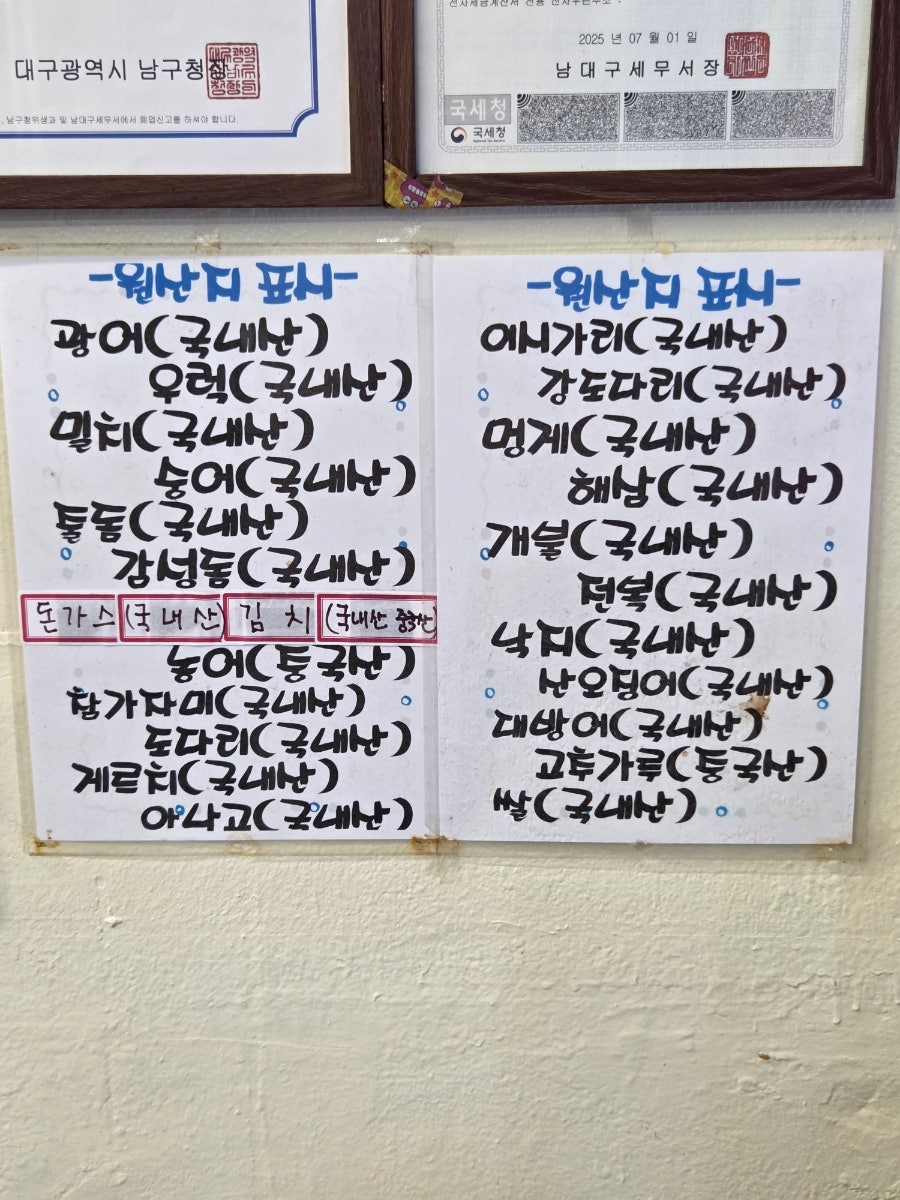 대구광역시 남구청장
남구청위생과 및 남대구세무서에서 폐업신고를 하셔야 합니다.
2025 년 07 월 01 일
남대구세무서장
국세청
국세청
National Tax Service
-원산지 표시-
광어(국내산)
우럭(국내산)
밀치(국내산)
숭어(국내산)
돌돔(국내산)
감성돔(국내산)
돈가스 (국내산) 김치 (국내산 중국산)
농어(중국산)
참가자미(국내산)
도다리(국내산)
게르치(국내산)
아나고(국내산)
-원산지 표시-
이시가리(국내산)
강도다리(국내산)
멍게(국내산)
해삼(국내산)
개불(국내산)
전복(국내산)
낙지(국내산)
산오징어(국내산)
대방어(국내산)
고추가루(중국산)
쌀(국내산)